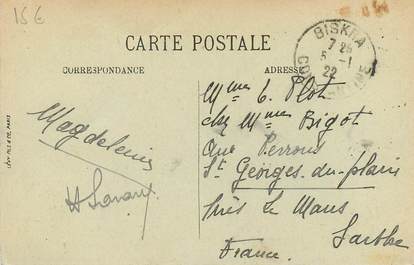 15€
CARTE POSTALE
CORRESPONDANCE
ADRESSE
BISKRA
7 25
5 -1
22
Magdeleine
Mme E. Plot
chez Mme Bigot
Rue Perrous
St Georges-du-plain
Près Le Mans
Sarthe
France